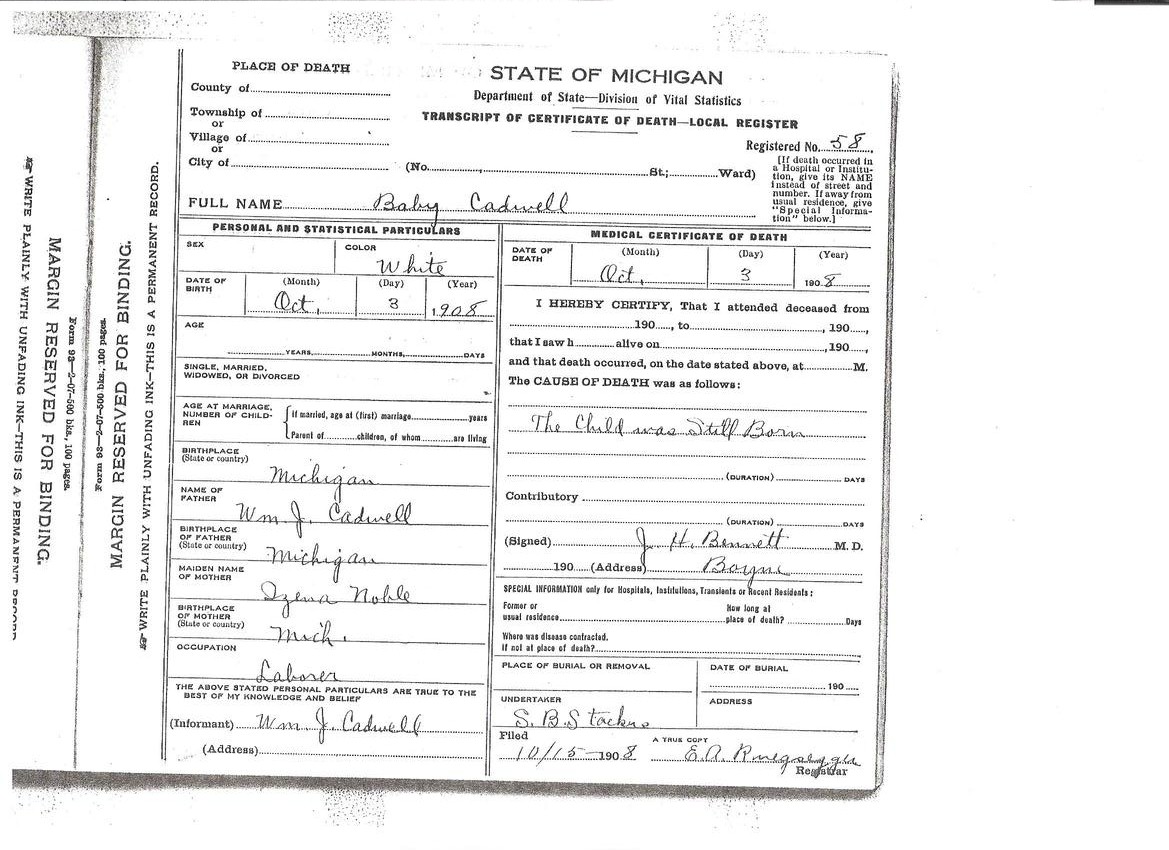 WRITE PLAINLY WITH UNFADING INK—THIS IS A PERMANENT RECORD
MARGIN RESERVED FOR BINDING.
Form 98—2-07-500 bks., 100 pages.
Form 98—2-07-500 bks., 100 pages.
MARGIN RESERVED FOR BINDING.
WRITE PLAINLY WITH UNFADING INK—THIS IS A PERMANENT RECORD.
PLACE OF DEATH
County of
Township of
or
Village of
or
City of
STATE OF MICHIGAN
Department of State—Division of Vital Statistics
TRANSCRIPT OF CERTIFICATE OF DEATH—LOCAL REGISTER
Registered No. 58
(No. St.; Ward)
[If death occurred in
a Hospital or Institu-
tion, give its NAME
instead of street and
number. If away from
usual residence, give
"Special Informa-
tion" below.]
FULL NAME Baby Cadwell
PERSONAL AND STATISTICAL PARTICULARS
SEX
COLOR
White
DATE OF
BIRTH
(Month) (Day) (Year)
Oct. 3 1908
AGE
YEARS, MONTHS, DAYS
SINGLE, MARRIED,
WIDOWED, OR DIVORCED
AGE AT MARRIAGE,
NUMBER OF CHILD-
REN
If married, age at (first) marriage years
Parent of children, of whom are living
BIRTHPLACE
(State or country)
Michigan
NAME OF
FATHER
Wm J. Cadwell
BIRTHPLACE
OF FATHER
(State or country)
Michigan
MAIDEN NAME
OF MOTHER
Noble
BIRTHPLACE
OF MOTHER
(State or country)
Mich.
OCCUPATION
Laborer
THE ABOVE STATED PERSONAL PARTICULARS ARE TRUE TO THE
BEST OF MY KNOWLEDGE AND BELIEF
(Informant) Wm J. Cadwell
(Address)
MEDICAL CERTIFICATE OF DEATH
DATE OF
DEATH
(Month) (Day) (Year)
Oct. 3 1908
I HEREBY CERTIFY, That I attended deceased from
190 , to , 190 ,
that I saw h alive on , 190 ,
and that death occurred, on the date stated above, at M.
The CAUSE OF DEATH was as follows:
The Child was Still Born
(DURATION) DAYS
Contributory
(DURATION) DAYS
(Signed) J. H. Bennett M. D.
190 (Address) Boyne
SPECIAL INFORMATION only for Hospitals, Institutions, Transients or Recent Residents:
Former or
usual residence
How long at
place of death? Days
Where was disease contracted.
If not at place of death?
PLACE OF BURIAL OR REMOVAL
DATE OF BURIAL
190
UNDERTAKER
S. B. Stackus
ADDRESS
Filed
10/15 1908
A TRUE COPY
E. A.
Registrar